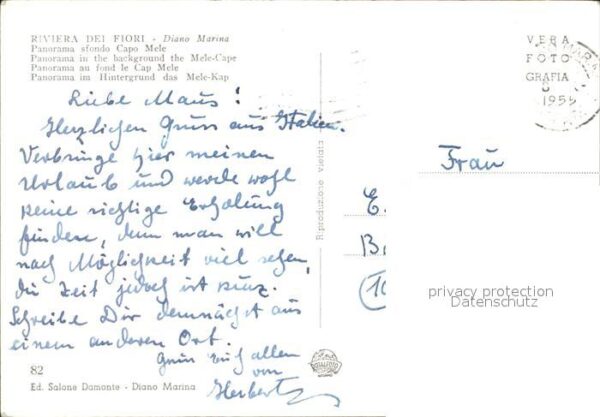 RIVIERA DEI FIORI - Diano Marina
Panorama sfondo Capo Mele
Panorama in the background the Mele-Cape
Panorama au fond le Cap Mele
Panorama im Hintergrund das Mele-Kap
VERA
FOTO
GRAFIA
1955
Liebe Maus!
Herzlichen Gruss aus Italien.
Verbringe hier meinen
Urlaub und werde wohl
keine richtige Erholung
finden, denn man will
nach Möglichkeit viel sehen,
die Zeit jedoch ist kurz.
Schreibe Dir demnächst aus
einem anderen Ort.
Gruss Euch allen
von
Herbert
Frau
E.
B.
(10
Riproduzione vietata
privacy protection
Datenschutz
82
Ed. Salone Damonte - Diano Marina